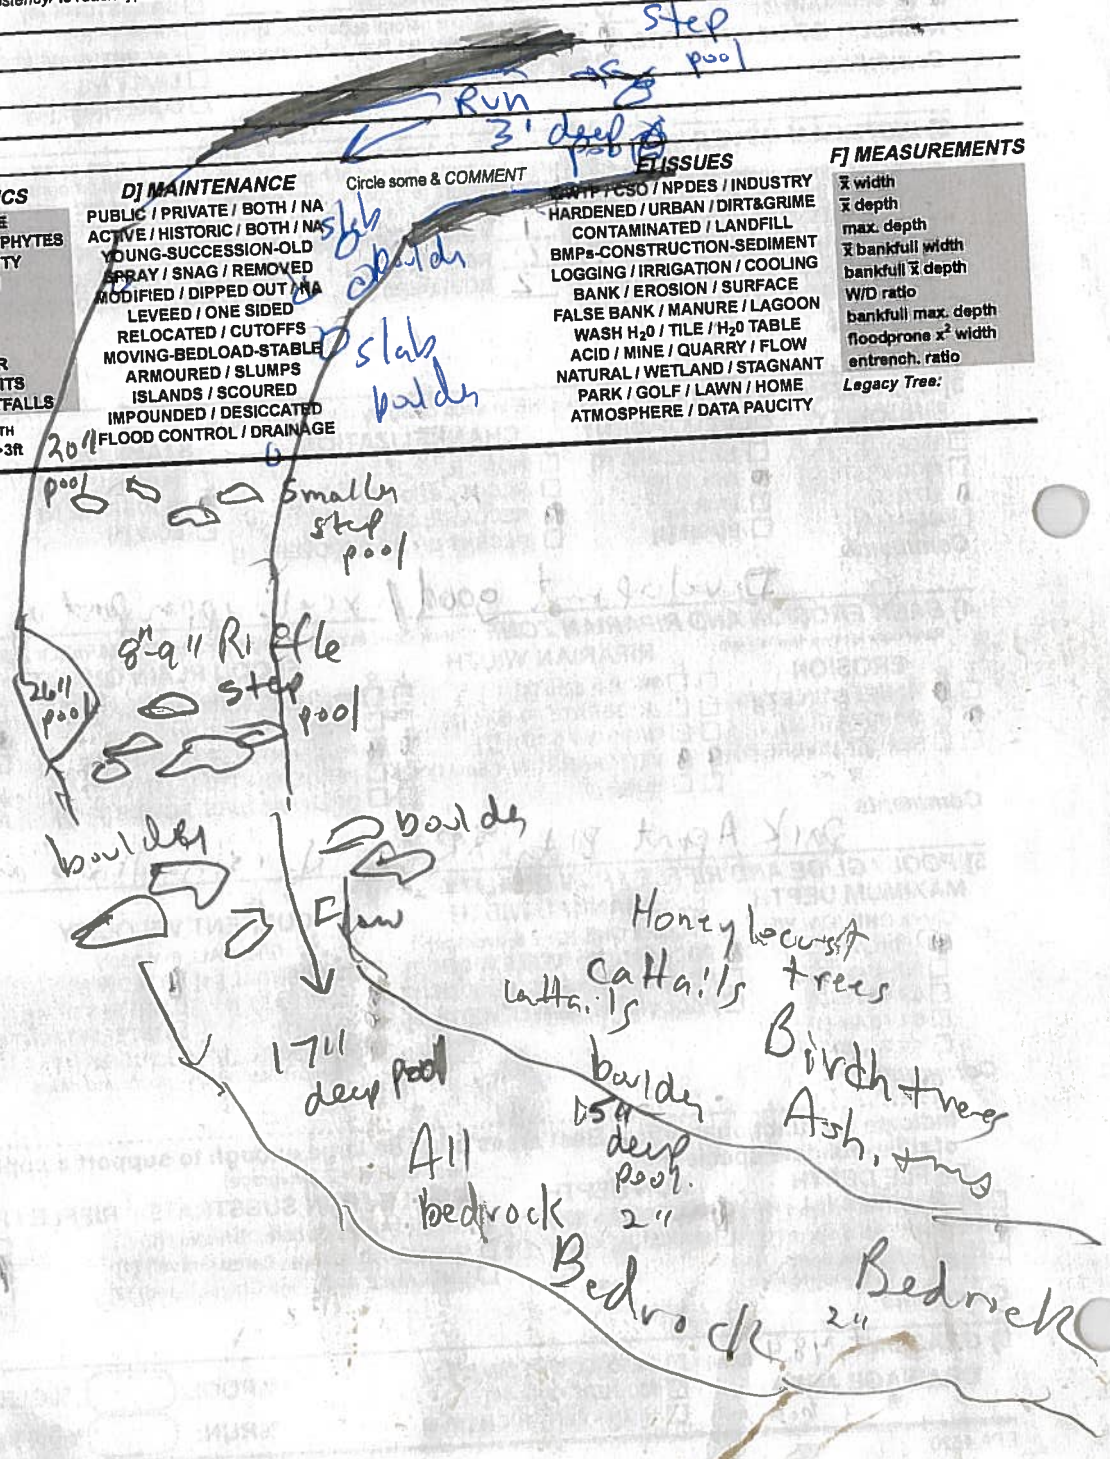 step
pool
Run
3' deep
pool
CS
E
PHYTES
TY
R
ITS
TFALLS
TH
>3ft
D] MAINTENANCE
PUBLIC / PRIVATE / BOTH / NA
ACTIVE / HISTORIC / BOTH / NA
YOUNG-SUCCESSION-OLD
SPRAY / SNAG / REMOVED
MODIFIED / DIPPED OUT / NA
LEVEED / ONE SIDED
RELOCATED / CUTOFFS
MOVING-BEDLOAD-STABLE
ARMOURED / SLUMPS
ISLANDS / SCOURED
IMPOUNDED / DESICCATED
FLOOD CONTROL / DRAINAGE
Circle some & COMMENT
slab
boulds
slab
boulds
E] ISSUES
WWTP / CSO / NPDES / INDUSTRY
HARDENED / URBAN / DIRT&GRIME
CONTAMINATED / LANDFILL
BMPs-CONSTRUCTION-SEDIMENT
LOGGING / IRRIGATION / COOLING
BANK / EROSION / SURFACE
FALSE BANK / MANURE / LAGOON
WASH H₂0 / TILE / H₂0 TABLE
ACID / MINE / QUARRY / FLOW
NATURAL / WETLAND / STAGNANT
PARK / GOLF / LAWN / HOME
ATMOSPHERE / DATA PAUCITY
F] MEASUREMENTS
x̄ width
x̄ depth
max. depth
x̄ bankfull width
bankfull x̄ depth
W/D ratio
bankfull max. depth
floodprone x² width
entrench. ratio
Legacy Tree:
20"
pool
Smaller
step
pool
8"-9" Riffle
step
pool
26"
pool
boulders
boulder
Flow
Honeylocust
trees
cattails
cattails
Birch trees
Ash, trees
17"
deep pool
boulder
15"
deep
pool.
2"
All
bedrock
Bedrock
2"
Bedrock